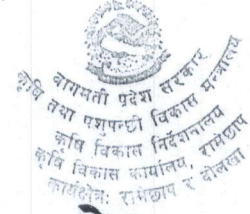 बागमती प्रदेश सरकार
कृषि तथा पशुपन्छी विकास मन्त्रालय
कृषि विकास निर्देशनालय
कृषि विकास कार्यालय, रामेछाप
कार्यक्षेत्र: रामेछाप र दोलखा